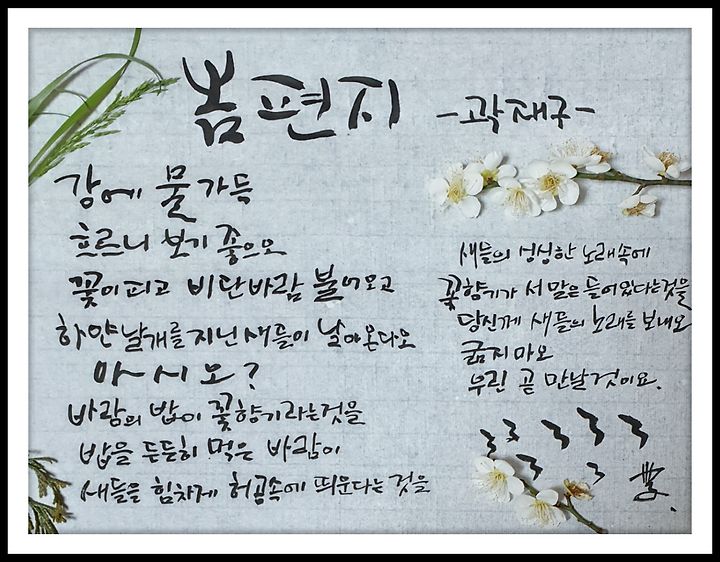 봄편지 -곽재구-
강에 물 가득
흐르니 보기 좋으오
꽃이 피고 비단바람 불어오고
하얀 날개를 지닌 새들이 날아온다오
아시오?
바람의 밥이 꽃향기라는것을
밥을 든든히 먹은 바람이
새들을 힘차게 허공속에 띄운다는 것을
새들의 싱싱한 노래속에
꽃향기가 서 말은 들어있다는것을
당신께 새들의 노래를 보내오
굶지마오
우린 곧 만날것이요.